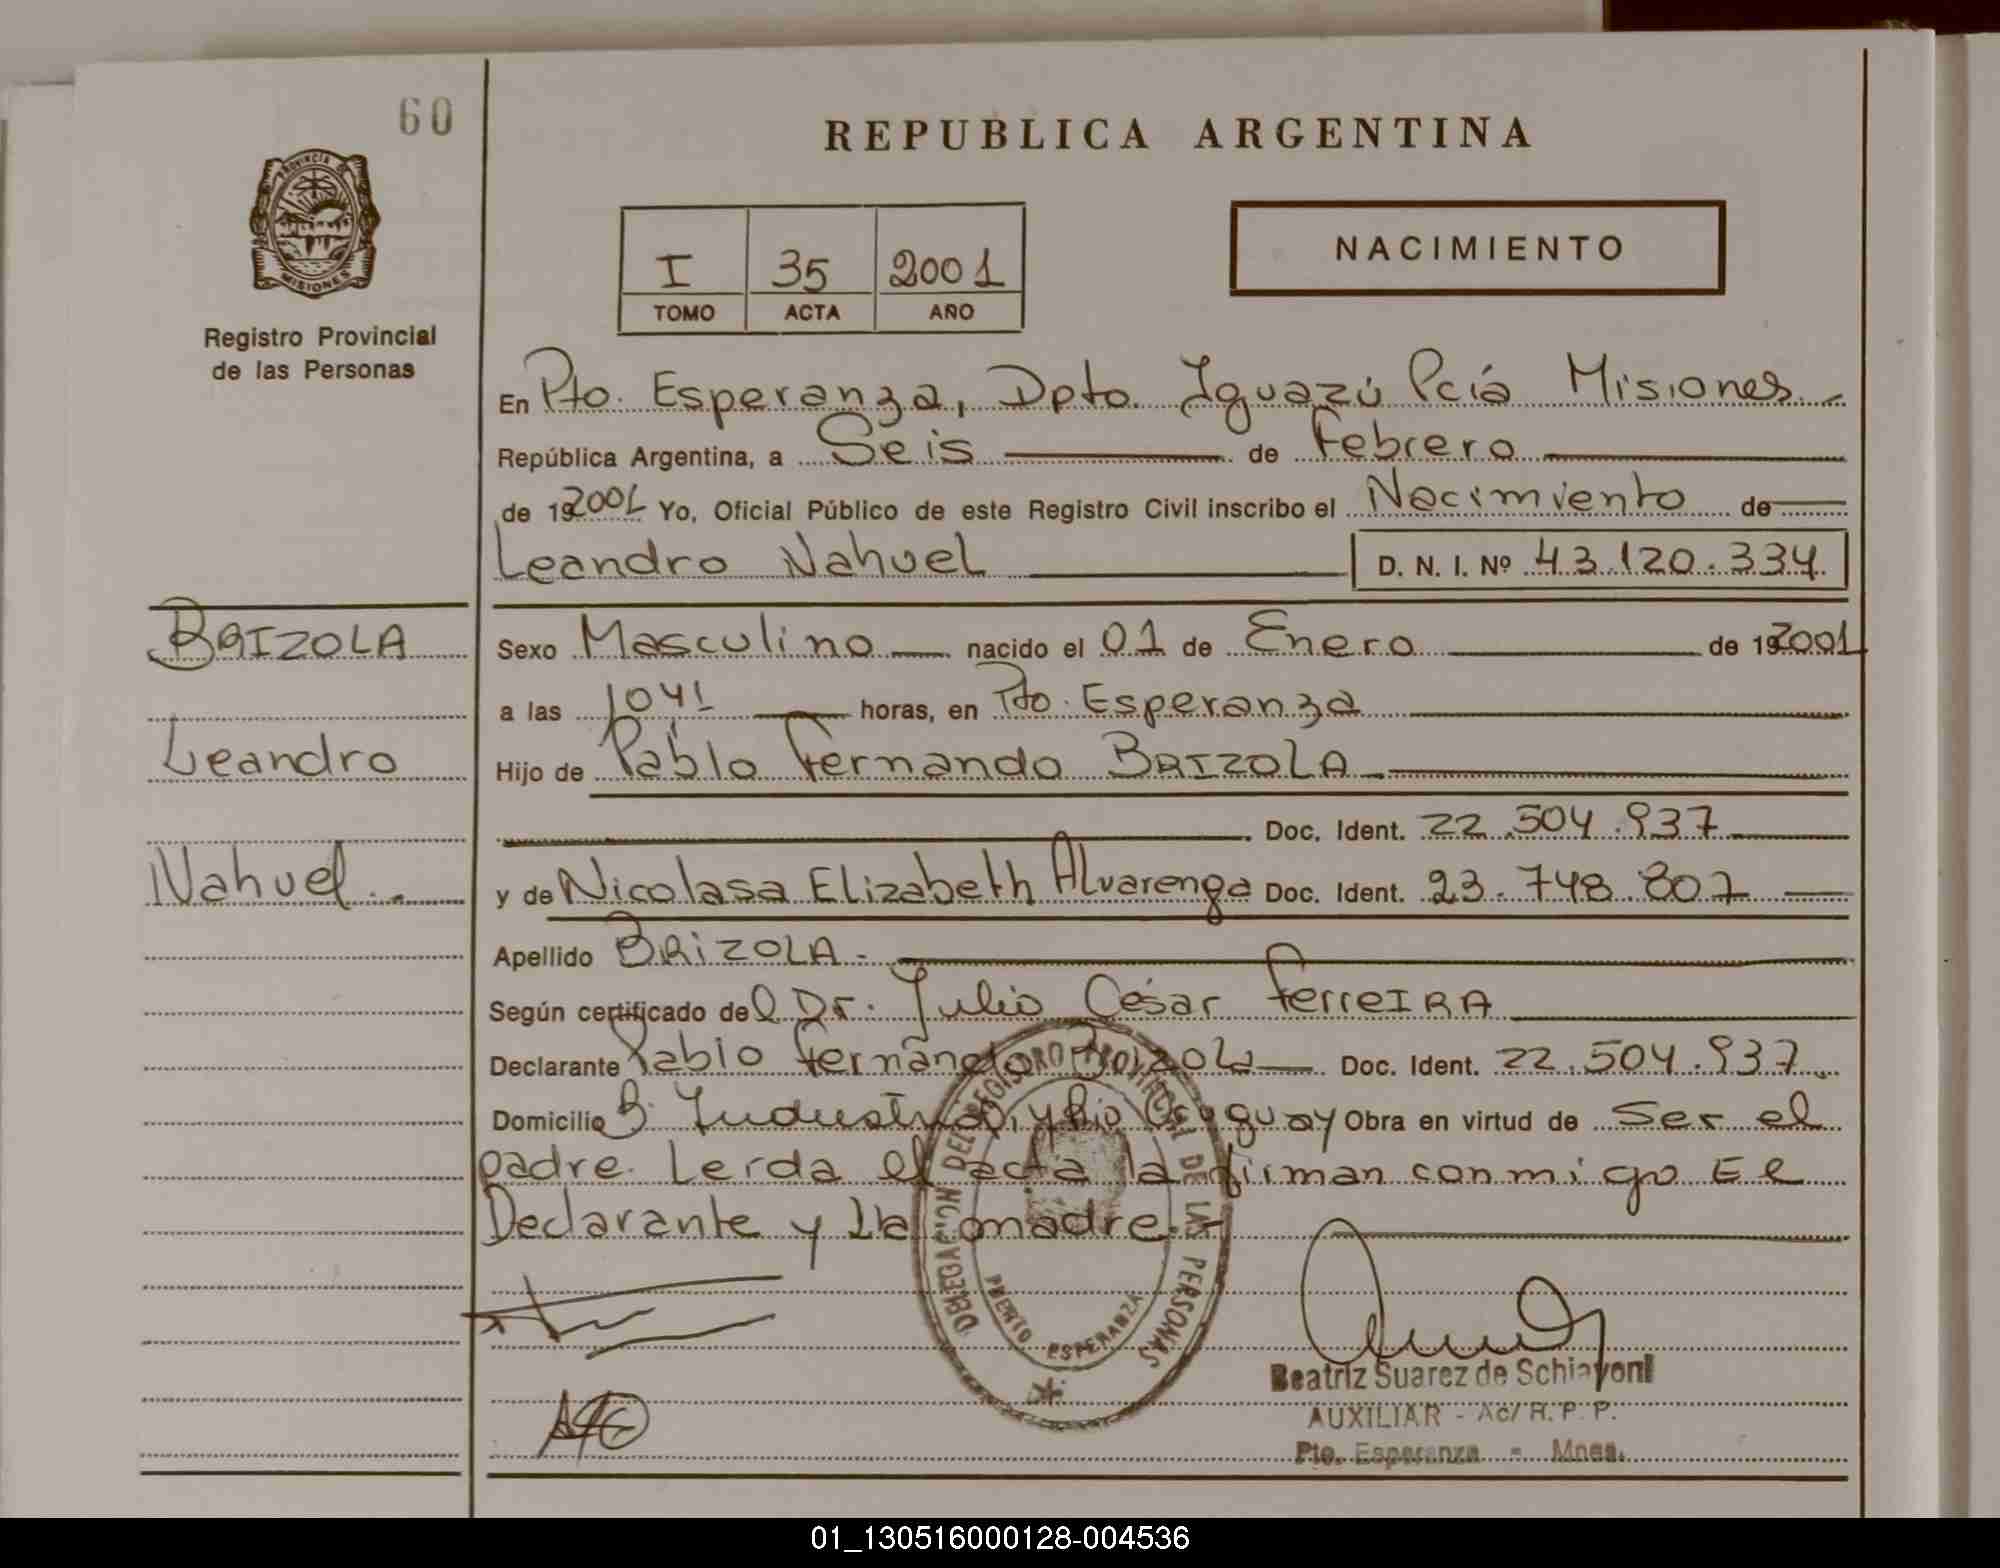 60
REPUBLICA ARGENTINA
PROVINCIA DE
MISIONES
Registro Provincial
de las Personas
I 35 2001
TOMO ACTA AÑO
NACIMIENTO
En Pto. Esperanza, Dpto. Iguazú Pcía Misiones
República Argentina, a Seis de Febrero
de 19 2001 Yo, Oficial Público de este Registro Civil inscribo el Nacimiento de
Leandro Nahuel D. N. I. Nº 43.120.334
BRIZOLA
Leandro
Nahuel.-
Sexo Masculino nacido el 01 de Enero de 19 2001
a las 1041 horas, en Pto. Esperanza
Hijo de Pablo Fernando BRIZOLA
Doc. Ident. 22.504.937
y de Nicolasa Elizabeth Alvarenga Doc. Ident. 23.748.807
Apellido BRIZOLA.
Según certificado del Dr. Julio César FerreIRA
Declarante Pablo Fernando Brizola Doc. Ident. 22.504.937
Domicilio B. Industrial, y Rio Uruguay Obra en virtud de Ser el
padre. Leída el acta la firman conmigo El
Declarante y La madre.-
DELEGACION DEL REGISTRO PROVINCIAL DE LAS PERSONAS
PUERTO ESPERANZA
Beatriz Suarez de Schiavoni
AUXILIAR - Ac/ R. P. P.
Pto. Esperanza - Mnes.
01_130516000128-004536